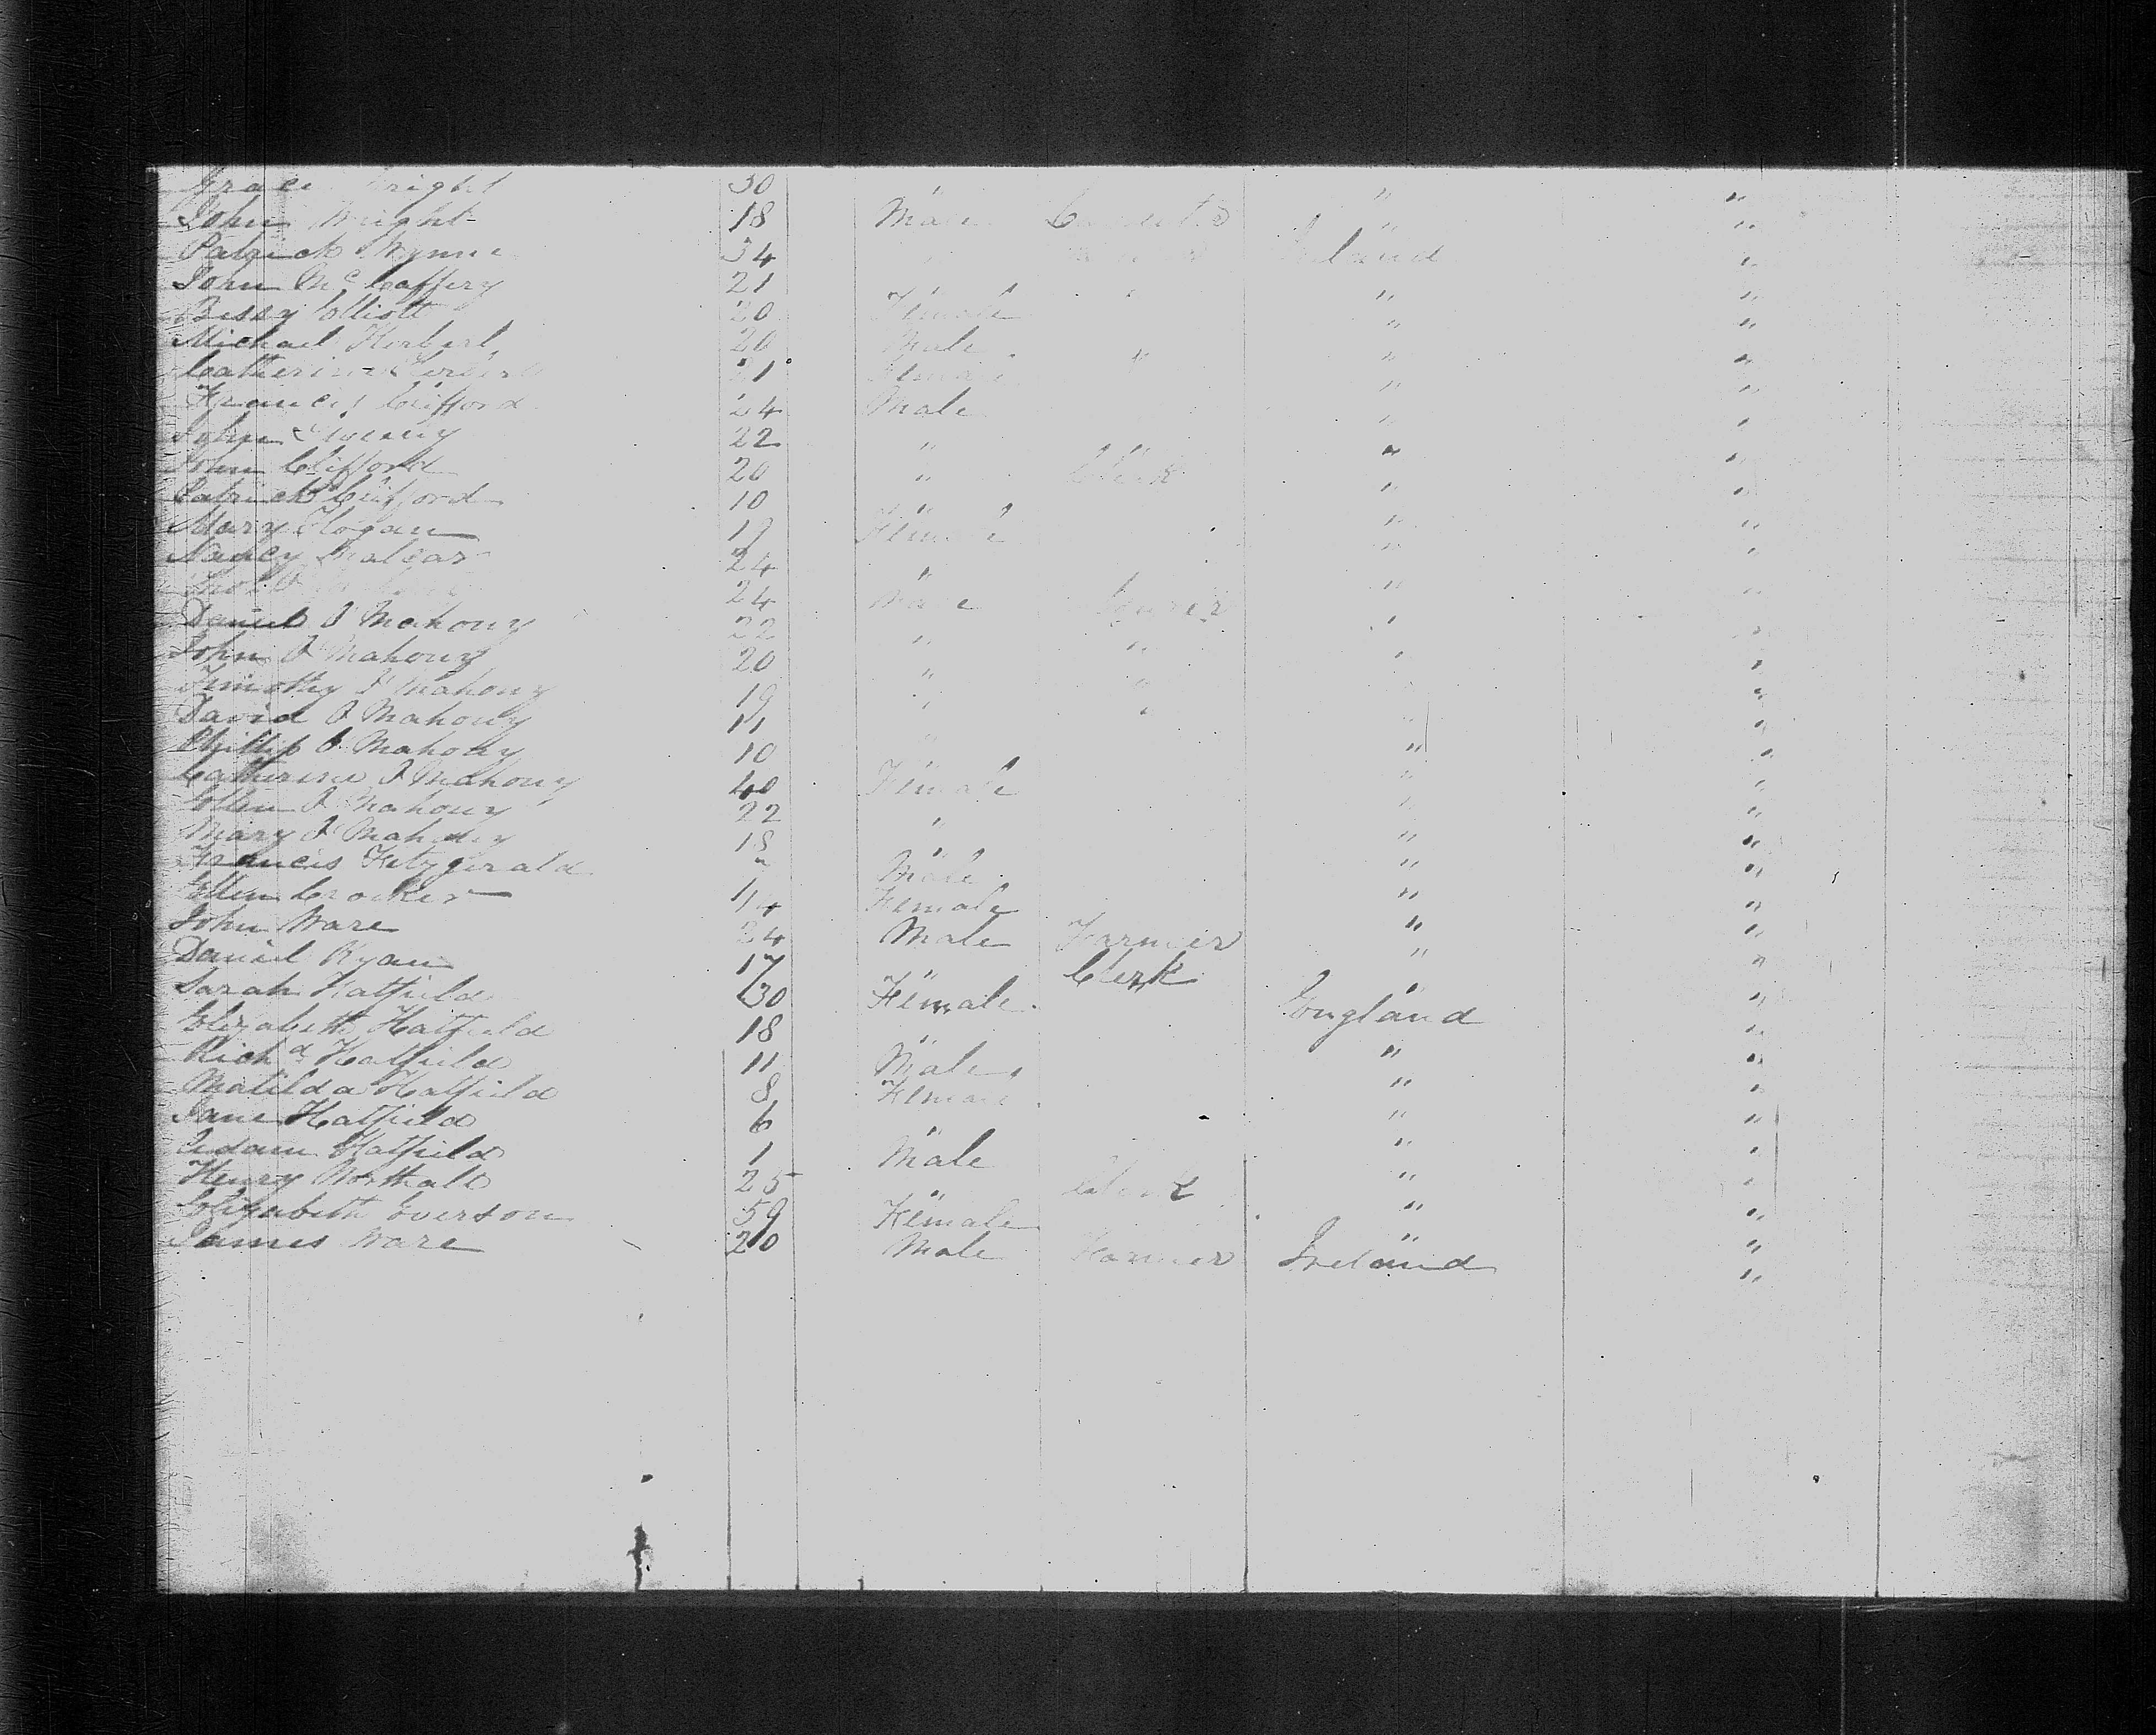 Grace Wright 30 " "
John Wright 18 Male " "
Patrick Wynne 34 " Ireland "
John McCaffery 21 " " "
Bessy Elliott 20 Female " "
Michael Herbert 20 Male " " "
Catherine Herbert 21 Female " "
Francis Clifford 24 Male " "
John Sweeny 22 " " "
John Clifford 20 " Clerk " "
Patrick Clifford 10 " " "
Mary Hogan 19 Female " "
Nancy 24 " " "
24 Male " "
Daniel O Mahony 22 " " " "
John O Mahony 20 " " "
Timothy O Mahony 19 " " "
David O Mahony 11 " " "
Phillip O Mahony 10 " "
Catherine O Mahony 40 Female " "
Ellen O Mahony 22 " " "
Mary O Mahony 18 " " "
Francis Fitzgerald Male " "
Ellen Crocker 14 Female " "
John Ware 24 Male Farmer " "
Daniel Ryan 17 " Clerk " "
Sarah Hatfield 30 Female England "
Elizabeth Hatfield 18 " " "
Richd Hatfield 11 Male " "
Matilda Hatfield 8 Female " "
Jane Hatfield 6 " " "
Adam Hatfield 1 Male " "
Henry 25 " Clerk " "
Elizabeth Everson 59 Female " "
James Ware 20 Male Farmer Ireland "